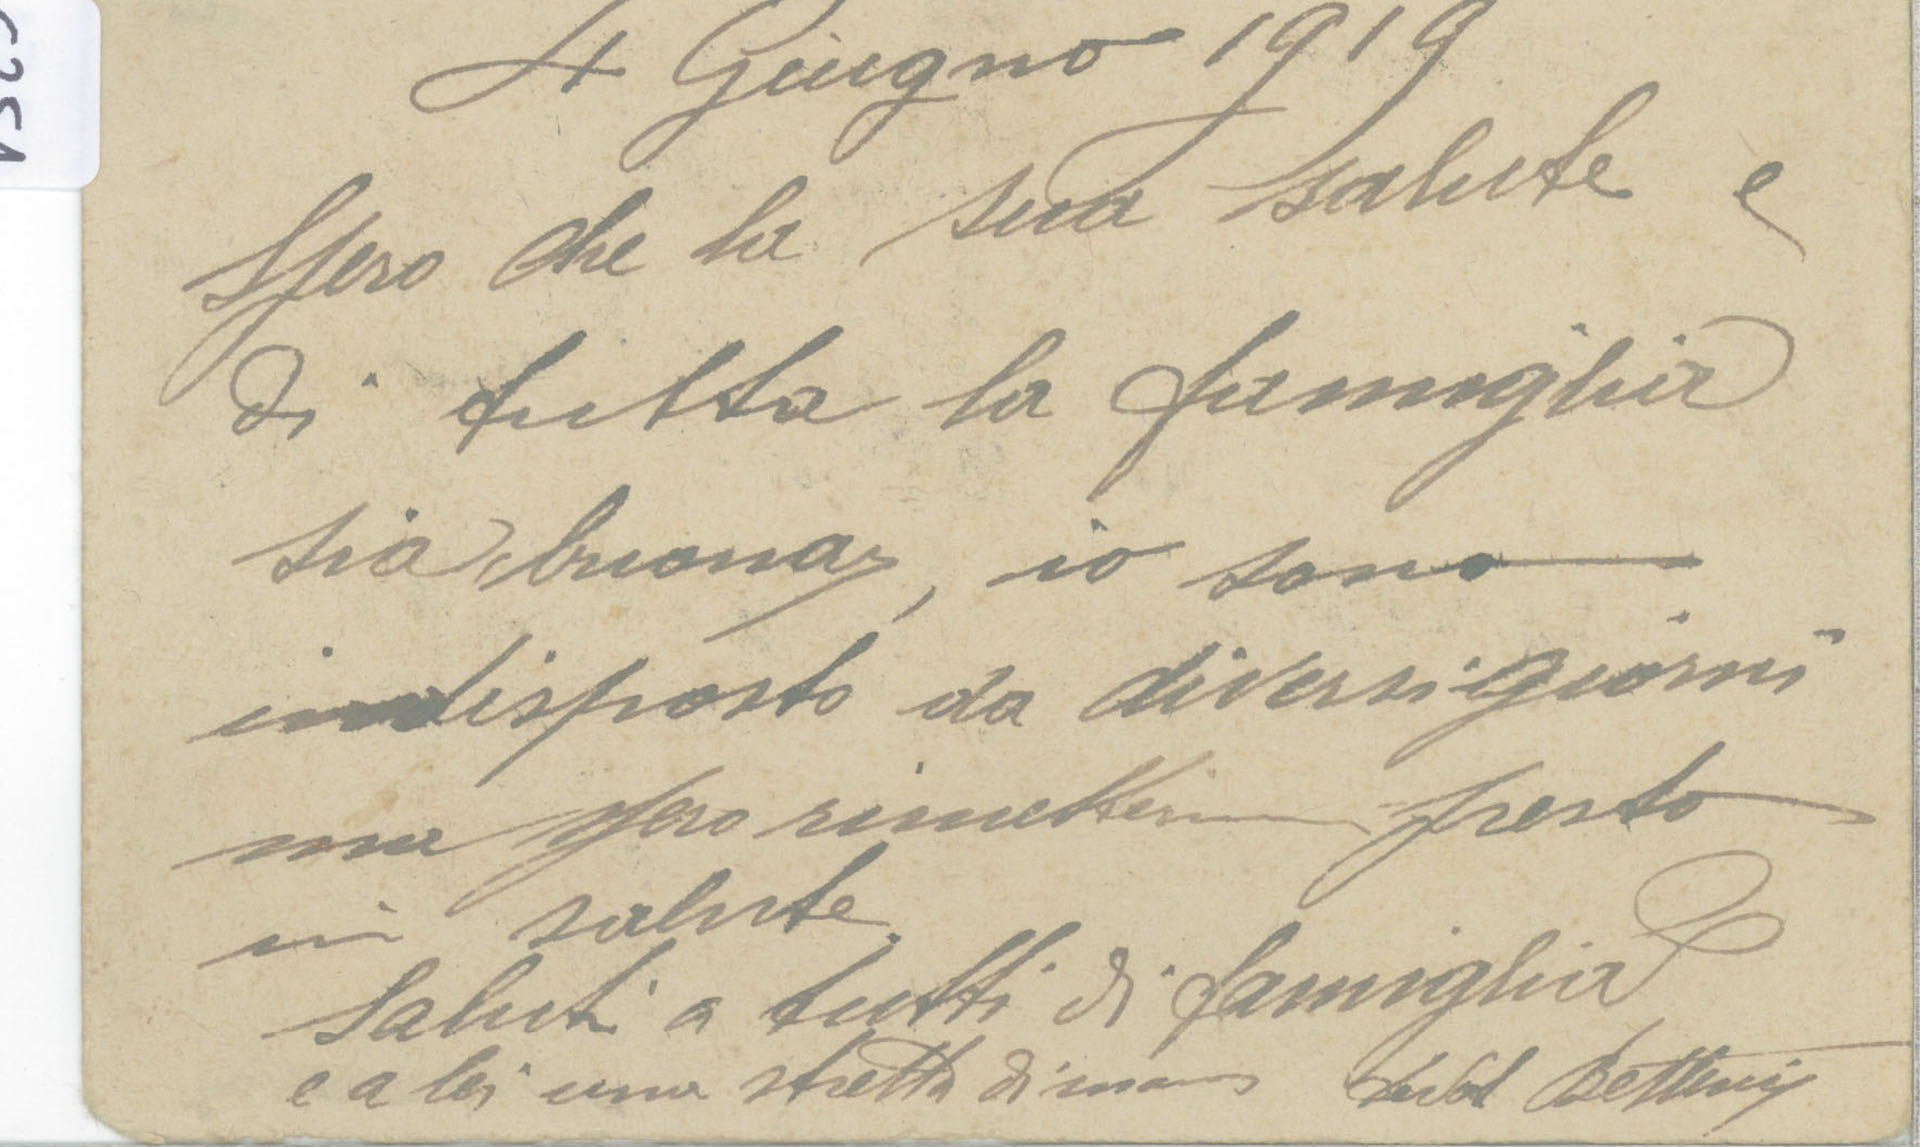 4 Giugno 1919
Spero che la sua salute e
di tutta la famiglia
sia buona, io sono
indisposto da diversi giorni
ma spero rimettermi presto
in salute.
Saluti a tutti di famiglia
e a lei una stretta di mano